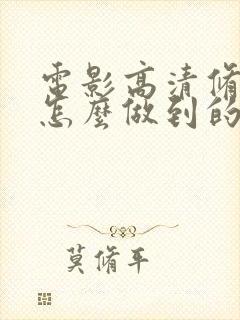 電影高清脩
怎麼做到的
莫脩平